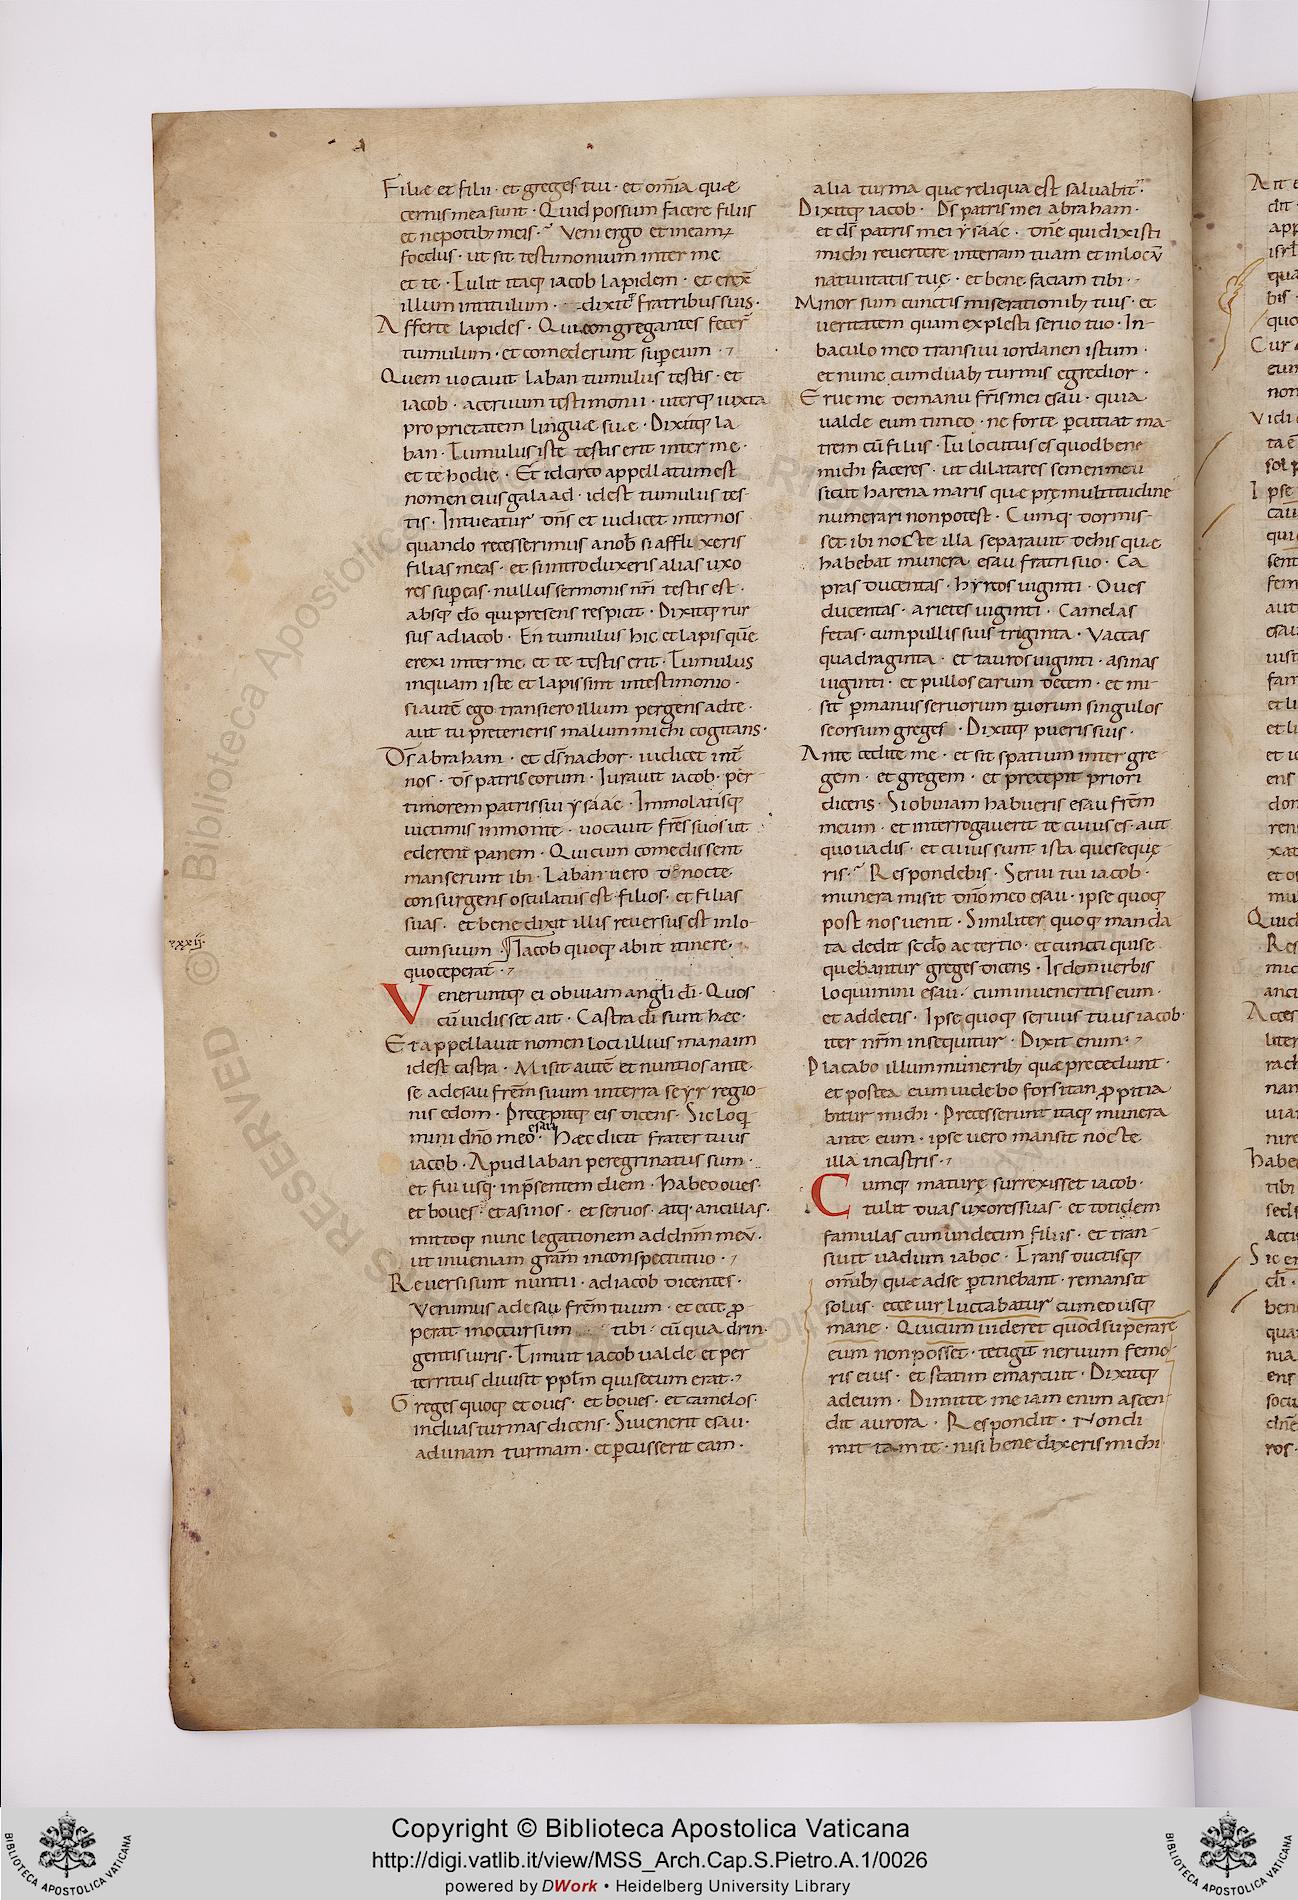 Filiæ et filii · et greges tui · et om̄ia quæ
cernis mea sunt · Quid possum facere filiis
et nepotib; meis · Veni ergo et ineam;
foedus · ut sit testimonium inter me
et te · Tulit itaq; iacob lapidem · et erex̄
illum intitulum · dixitq; fratribus suis ·
Afferte lapides · Qui congregantes fecer̄
tumulum · et comederunt sup eum ·
Quem uocauit laban tumulus testis · et
iacob · aceruum testimonii · uterq; iuxta
proprietatem linguæ suæ · Dixitq; la
ban · Tumulus iste testis erit inter me ·
et te hodie · Et idcirco appellatum est
nomen eius galaad · idest tumulus tes-
tis · Intueatur dn̄s et iudicet internos
quando recesserimus a nob̄ si afflixeris
filias meas · et si introduxeris alias uxo
res sup eas · nullus sermonis nr̄i testis est ·
absq; do̅ qui presens respicit · Dixitq; rur
sus ad iacob · En tumulus hic et lapis quē
erexi inter me et te testis erit · Tumulus
inquam iste et lapis sint intestimonio ·
si autē ego transiero illum pergens ad te ·
aut tu preterieris malum michi cogitans ·
Ds̄ abraham · et ds̄ nachor · iudicet int̄
nos · ds̄ patris eorum · Iurauit iacob · per
timorem patris sui ysaac · Immolatisq;
uictimis in monte · uocauit fr̄es suos ut
ederent panem · Qui cum comedissent
manserunt ibi · Laban uero de nocte
consurgens osculatus est filios · et filias
suas · et benedixit illis reuersus est inlo-
cum suum · Iacob quoq; abiit itinere
xxxii·
quo ceperat ·
Veneruntq; ei obuiam angl̄i dī · Quos
cū uidisset ait · Castra dī sunt hæc ·
Et appellauit nomen loci illius manaim
idest castra · Misit autē et nuntios ante
se ad esau fr̄em suum in terra seyr regio-
nis edom · Precepitq; eis dicens · Sic loq
mini dn̄o meo esau · Hæc dicit frater tuus
iacob · Apud laban peregrinatus sum ·
et fui usq; inpsentem diem · Habeo oues ·
et boues · et asinos · et seruos · atq; ancillas ·
mittoq; nunc legationem ad dn̄m meū ·
ut inueniam gram̄ inconspectu tuo ·
Reuersi sunt nuntii · ad iacob dicentes ·
Venimus ad esau fr̄em tuum · et ecce pro
perat in occursum tibi · cū quadrin·
gentis uiris · Timuit iacob ualde et per
territus diuisit pplm̄ qui secum erat ·
Greges quoq; et oues · et boues · et camelos ·
in duas turmas dicens · Si uenerit esau ·
ad unam turmam · et pcusserit eam ·
alia turma quæ reliqua est saluabit̄ ·
Dixitq; iacob · Ds̄ patris mei abraham ·
et ds̄ patris mei ysaac · dn̄e qui dixisti
michi reuertere interram tuam et inlocū
natiuitatis tuę · et bene faciam tibi ·
Minor sum cunctis miserationib; tuis · et
ueritatem quam explesti seruo tuo · In-
baculo meo transiui iordanen istum ·
et nunc cum duab; turmis egredior ·
Erue me demanu fr̄is mei esau · quia
ualde eum timeo · ne forte pcutiat ma-
trem cū filiis · Tu locutus es quod bene
michi faceres · ut dilatares semen meū
sicut harena maris quæ prę multitudine
numerari non potest · Cumq; dormis-
set ibi nocte illa separauit dehis quæ
habebat munera esau fratri suo · Ca
pras ducentas · hyrcos uiginti · Oues
ducentas · arietes uiginti · Camelas
fetas · cum pullis suis triginta · Vaccas
quadraginta · et tauros uiginti · asinas
uiginti · et pullos earum decem · et mi-
sit pmanus seruorum suorum singulos
seorsum greges · Dixitq; pueris suis ·
Antecedite me · et sit spatium inter gre
gem · et gregem · et precepit priori
dicens · Si obuiam habueris esau fr̄em
meum · et interrogauerit te cuius es · aut
quo uadis · et cuius sunt ista quę sequę
ris · Respondebis · Serui tui iacob ·
munera misit dn̄o meo esau · ipse quoq;
post nos uenit · Similiter quoq; manda
ta dedit scd̄o ac tertio · et cuncti qui se
quebantur greges dicens · Isdem uerbis
loquimini esau · cum inueneritis eum ·
et addetis · Ipse quoq; seruus tuus iacob ·
iter nr̄m insequitur · Dixit enim ·
Placabo illum munerib; quæ precedunt ·
et postea eum uidebo forsitan ppitia
bitur michi · Precesserunt itaq; munera
ante eum · ipse uero mansit nocte
illa incastris ·
Cumq; maturę surrexisset iacob ·
tulit duas uxores suas · et totidem
famulas cum undecim filiis · et tran-
siuit uadum iaboc · Trans ductisq;
om̄ib; quæ ad se ptinebant · remansit
solus · ecce uir luctabatur cum eo usq;
mane · Qui cum uideret quod superare
eum non posset · tetigit neruum femo-
ris eius · et statim emarcuit · Dixitq;
ad eum · Dimitte me iam enim ascen
dit aurora · Respondit · Non di
mittam te · nisi benedixeris michi
Copyright © Biblioteca Apostolica Vaticana
http://digi.vatlib.it/view/MSS_Arch.Cap.S.Pietro.A.1/0026
powered by DWork • Heidelberg University Library